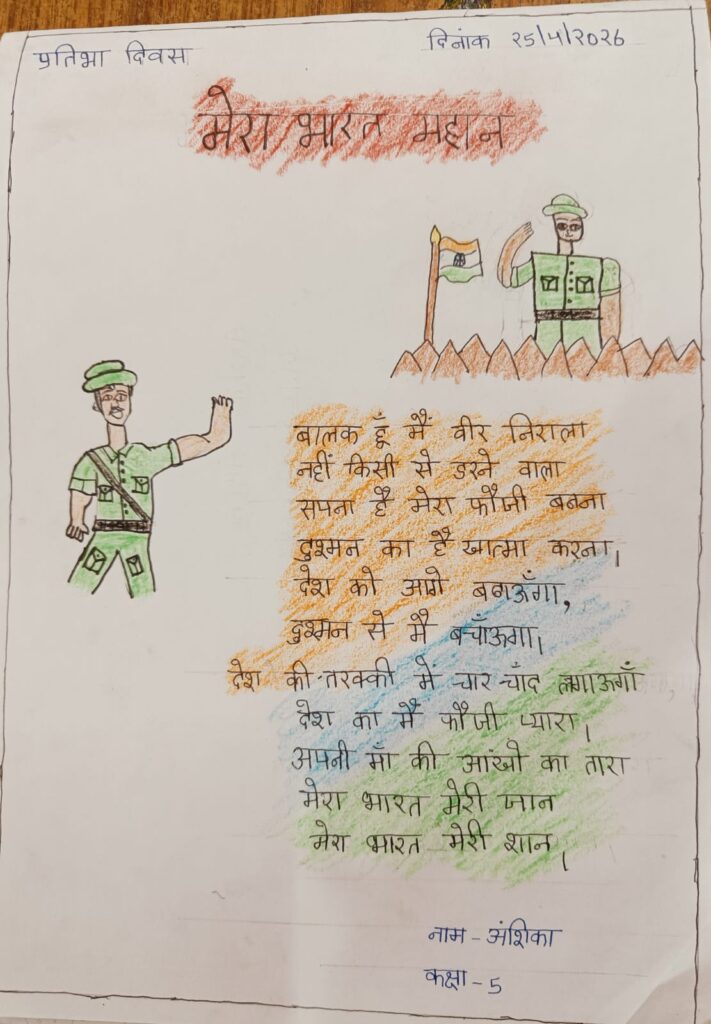 प्रतिभा दिवस
दिनांक २5/4/२०२6
मेरा भारत महान
बालक हूँ मैं वीर निराला
नहीं किसी से डरने वाला
सपना है मेरा फौजी बनना
दुश्मन का है खात्मा करना।
देश को आगे बगऊँगा,
दुश्मन से मैं बचाँऊगा।
देश की तरक्की में चार चाँद लगाऊगाँ
देश का मैं फौजी प्यारा।
अपनी माँ की आंखो का तारा
मेरा भारत मेरी जान
मेरा भारत मेरी शान।
नाम - अंशिका
कक्षा - 5